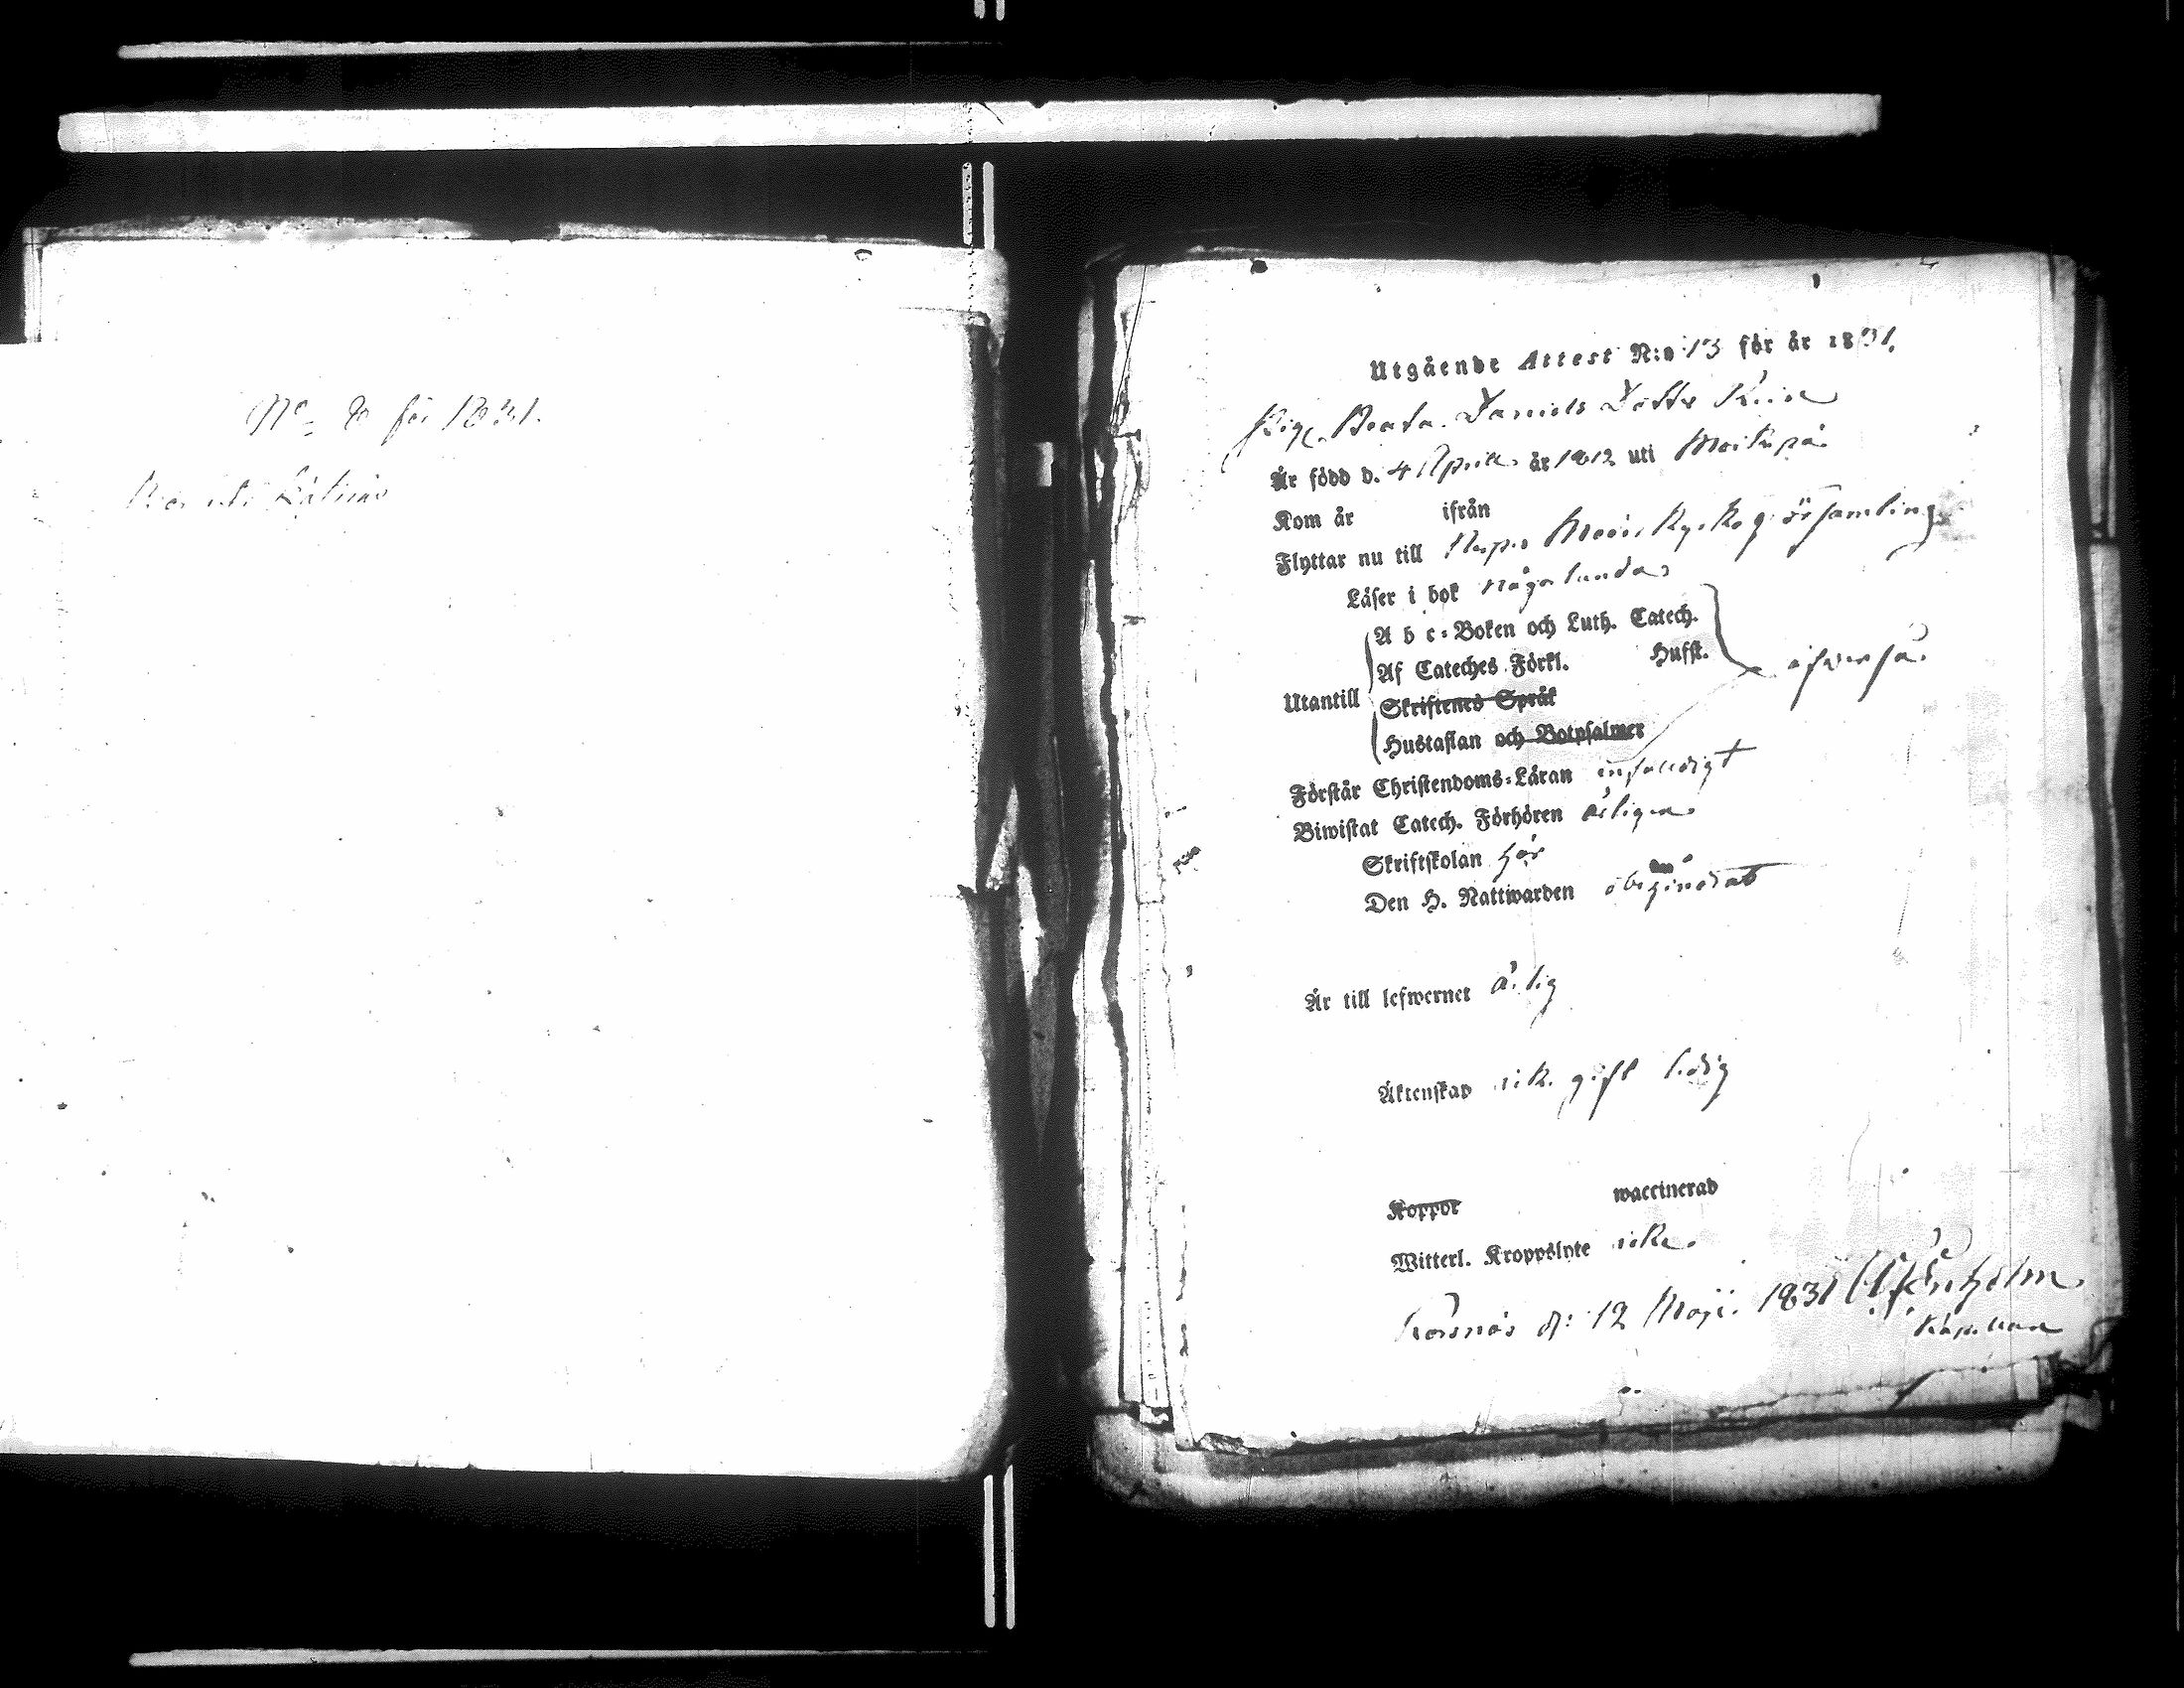 N:o 8 för 1831.
Utgående Attest N:o 13 för år 1831.
Pig. Beata Daniels Dotter
Är född d. 4 April år 1812 uti
Kom år ifrån
Flyttar nu till Kyrko Församling
Läser i bok någorlunda
A b c-Boken och Luth. Catech.
Af Cateches Förkl. Husst.
Utantill Skriftenes Språk
Hustaflan och Botpsalmer
Förstår Christendoms-Läran enfaldigt
Biwistat Catech. Förhören årligen
Skriftskolan här
Den H. Nattwarden
Är till lefwernet ärlig
Äktenskap ick. gift ledig
Koppor waccinerad
Witterl. Kroppslyte icke.
Korsnäs d: 12 Maji. 1831
Kapellan